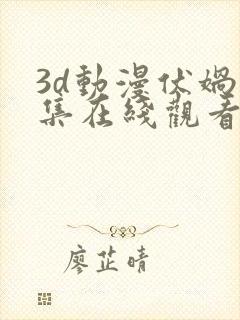 3d動漫伏媧
集在綫觀看
廖芷晴